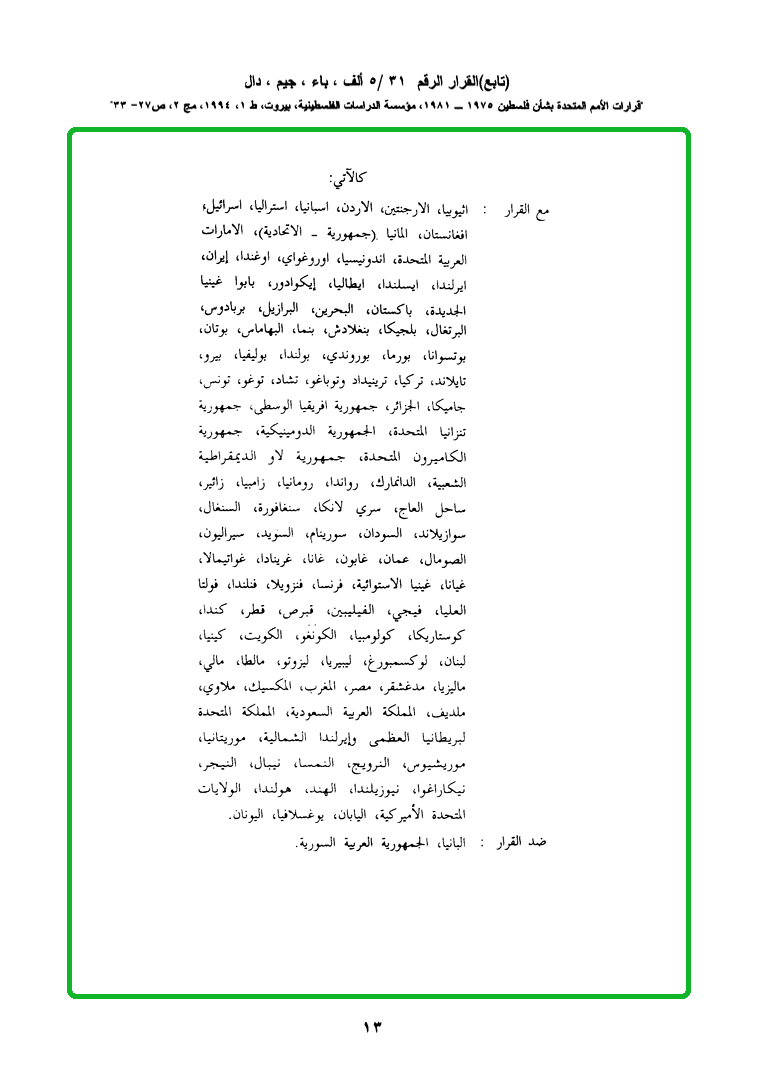 (تابع)القرار الرقم ٣١ /٥ ألف ، باء ، جيم ، دال
"قرارات الأمم المتحدة بشأن فلسطين ١٩٧٥ ــ ١٩٨١، مؤسسة الدراسات الفلسطينية، بيروت، ط ١، ١٩٩٤، مج ٢، ص٢٧- ٣٣"
كالآتي:
مع القرار : اثيوبيا، الارجنتين، الاردن، اسبانيا، استراليا، اسرائيل،
افغانستان، المانيا (جمهورية ـ الاتحادية)، الامارات
العربية المتحدة، اندونيسيا، اوروغواي، اوغندا، إيران،
ايرلندا، ايسلندا، ايطاليا، إيكوادور، بابوا غينيا
الجديدة، باكستان، البحرين، البرازيل، بربادوس،
البرتغال، بلجيكا، بنغلادش، بنما، البهاماس، بوتان،
بوتسوانا، بورما، بوروندي، بولندا، بوليفيا، بيرو،
تايلاند، تركيا، ترينيداد وتوباغو، تشاد، توغو، تونس،
جاميكا، الجزائر، جمهورية افريقيا الوسطى، جمهورية
تنزانيا المتحدة، الجمهورية الدومينيكية، جمهورية
الكاميرون المتحدة، جمهورية لاو الديمقراطية
الشعبية، الدانمارك، رواندا، رومانيا، زامبيا، زائير،
ساحل العاج، سري لانكا، سنغافورة، السنغال،
سوازيلاند، السودان، سورينام، السويد، سيراليون،
الصومال، عمان، غابون، غانا، غرينادا، غواتيمالا،
غيانا، غينيا الاستوائية، فرنسا، فنزويلا، فنلندا، فولتا
العليا، فيجي، الفيليبين، قبرص، قطر، كندا،
كوستاريكا، كولومبيا، الكونغو، الكويت، كينيا،
لبنان، لوكسمبورغ، ليبيريا، ليزوتو، مالطا، مالي،
ماليزيا، مدغشقر، مصر، المغرب، المكسيك، ملاوي،
ملديف، المملكة العربية السعودية، المملكة المتحدة
لبريطانيا العظمى وإيرلندا الشمالية، موريتانيا،
موريشيوس، النرويج، النمسا، نيبال، النيجر،
نيكاراغوا، نيوزيلندا، الهند، هولندا، الولايات
المتحدة الأميركية، اليابان، يوغسلافيا، اليونان.
ضد القرار : البانيا، الجمهورية العربية السورية.
١٣